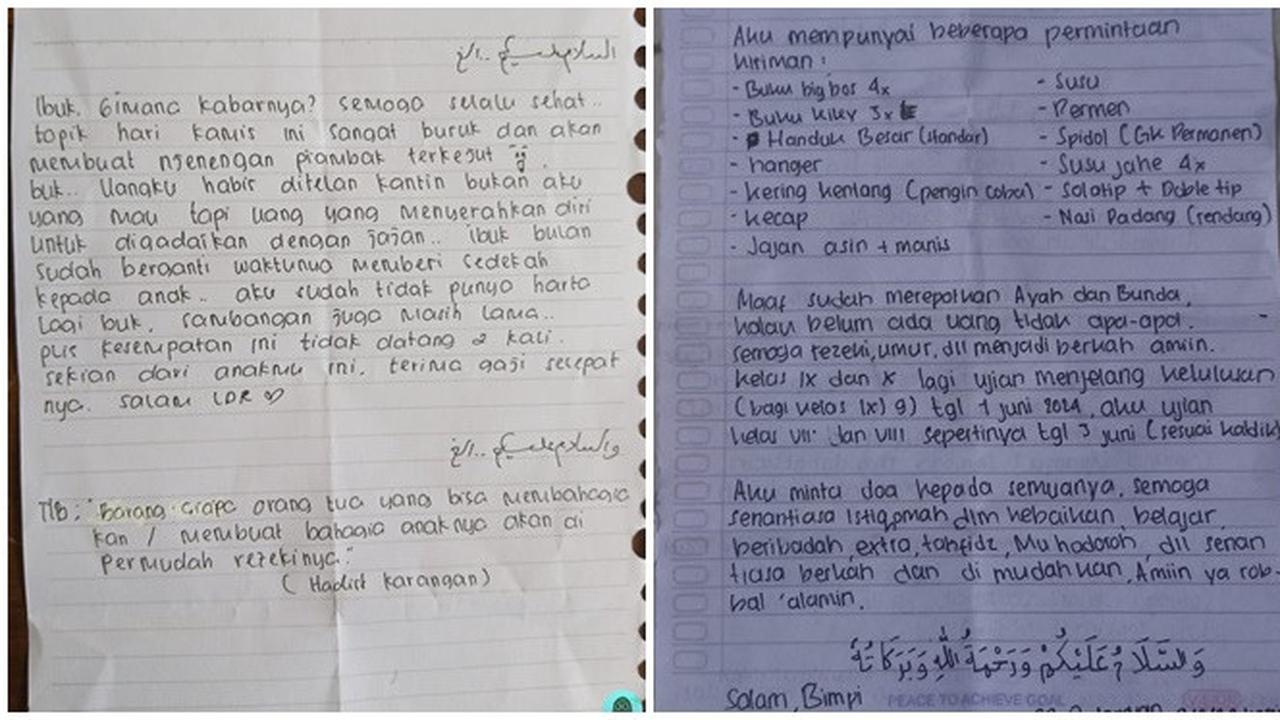 السلام عليكم ..الخ
Ibuk. Gimana kabarnya? semoga selalu sehat..
topik hari kamis ini sangat buruk dan akan
membuat njenengan piambak terkejut
buk.. Uangku habis ditelan kantin bukan aku
yang mau tapi uang yang menyerahkan diri
untuk digadaikan dengan jajan.. ibuk bulan
sudah berganti waktunya memberi sedekah
kepada anak.. aku sudah tidak punya harta
Lagi buk. sambangan juga masih lama..
plis kesempatan ini tidak datang 2 kali.
sekian dari anakmu ini. terima gaji secepat
nya. salam LDR ♡
والسلام عليكم ..الخ
"Barang siapa orang tua yang bisa membahagia
kan / membuat bahagia anaknya akan di
Permudah rezekinya."
(Hadist karangan)
Aku mempunyai beberapa permintaan
kiriman :
- Buku big bos 4x
- Buku kiky 3x
- Handuk Besar (standar)
- hanger
- kering kentang (pengin coba)
- kecap
- Jajan asin + manis
- Susu
- Permen
- Spidol (Gk Permanen)
- Susu jahe 4x
- Solatip + Doble tip
- Nasi Padang (rendang)
Maaf sudah merepotkan Ayah dan Bunda,
kalau belum ada uang tidak apa-apa.
semoga rezeki, umur, dll menjadi berkah amiin.
kelas IX dan X lagi ujian menjelang kelulusan
(bagi kelas IX) 9) tgl 1 juni 2024, aku ujian
kelas VII dan VIII sepertinya tgl 3 juni (sesuai kaldik)
Aku minta doa kepada semuanya, semoga
senantiasa istiqomah dlm kebaikan, belajar,
beribadah, extra, tahfidz, Muhadoroh, dll senan
tiasa berkah dan di mudahkan, Amiin ya rob-
bal 'alamin.
وَالسَّلَامُ عَلَيْكُمْ وَرَحْمَةُ اللهِ وَبَرَكَاتُهُ
Salam, Bimpi
PEACE TO ACHIEVE GOAL